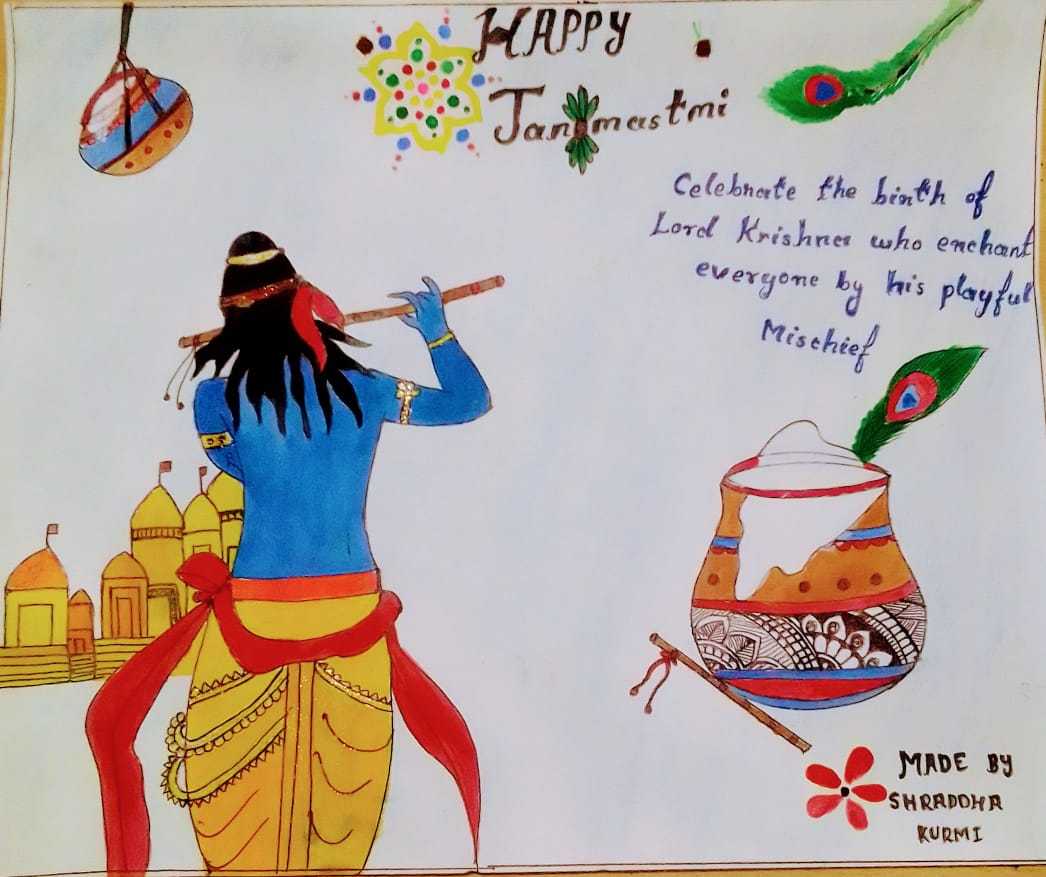 HAPPY
Janmastmi
Celebrate the birth of
Lord Krishna who enchant
everyone by his playful
Mischief
MADE BY
SHRADDHA
KURMI